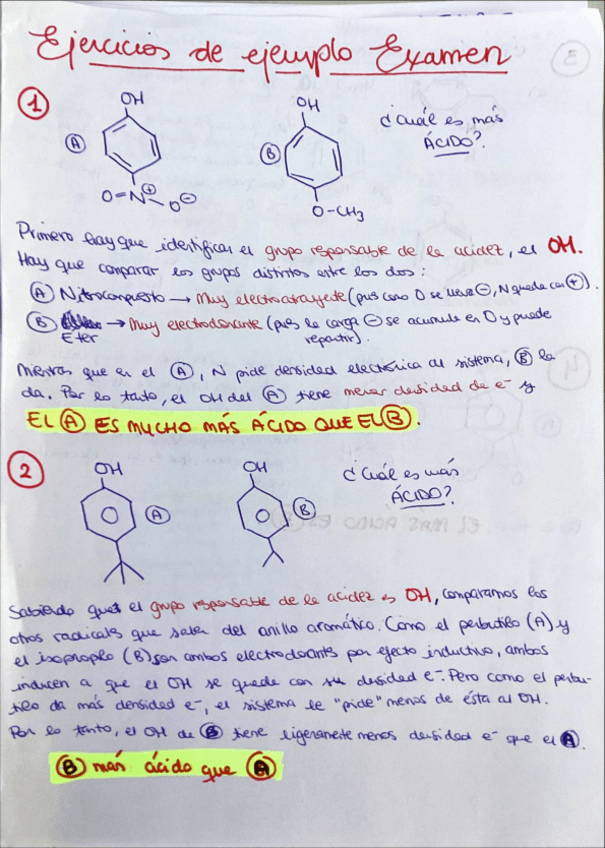 Ejercicios de ejemplo Examen
1
OH
A
O=N⊕-O⊖
OH
B
O-CH3
¿Cuál es más
ÁCIDO?
Primero hay que identificar el grupo responsable de la acidez, el OH.
Hay que comparar los grupos distintos entre los dos:
A Nitrocompuesto → Muy electroatrayente (pues como O se lleva ⊖, N queda con ⊕).
B → Muy electrodonante (pues la carga ⊖ se acumula en O y puede
Eter repartir).
Mientras que en el A, N pide densidad electrónica al sistema, B la
da. Por lo tanto, el OH del A tiene menor densidad de e- y
EL A ES MUCHO MÁS ÁCIDO QUE EL B.
2
OH
A
OH
B
¿Cuál es más
ÁCIDO?
Sabiendo que el grupo responsable de la acidez es OH, comparamos los
otros radicales que salen del anillo aromático. Como el terbutilo (A) y
el isopropilo (B) son ambos electrodonantes por efecto inductivo, ambos
inducen a que el OH se quede con su densidad e-. Pero como el terbu-
tilo da más densidad e-, el sistema le "pide" menos de ésta al OH.
Por lo tanto, el OH de B tiene ligeramente menos densidad e- que el A.
B más ácido que A